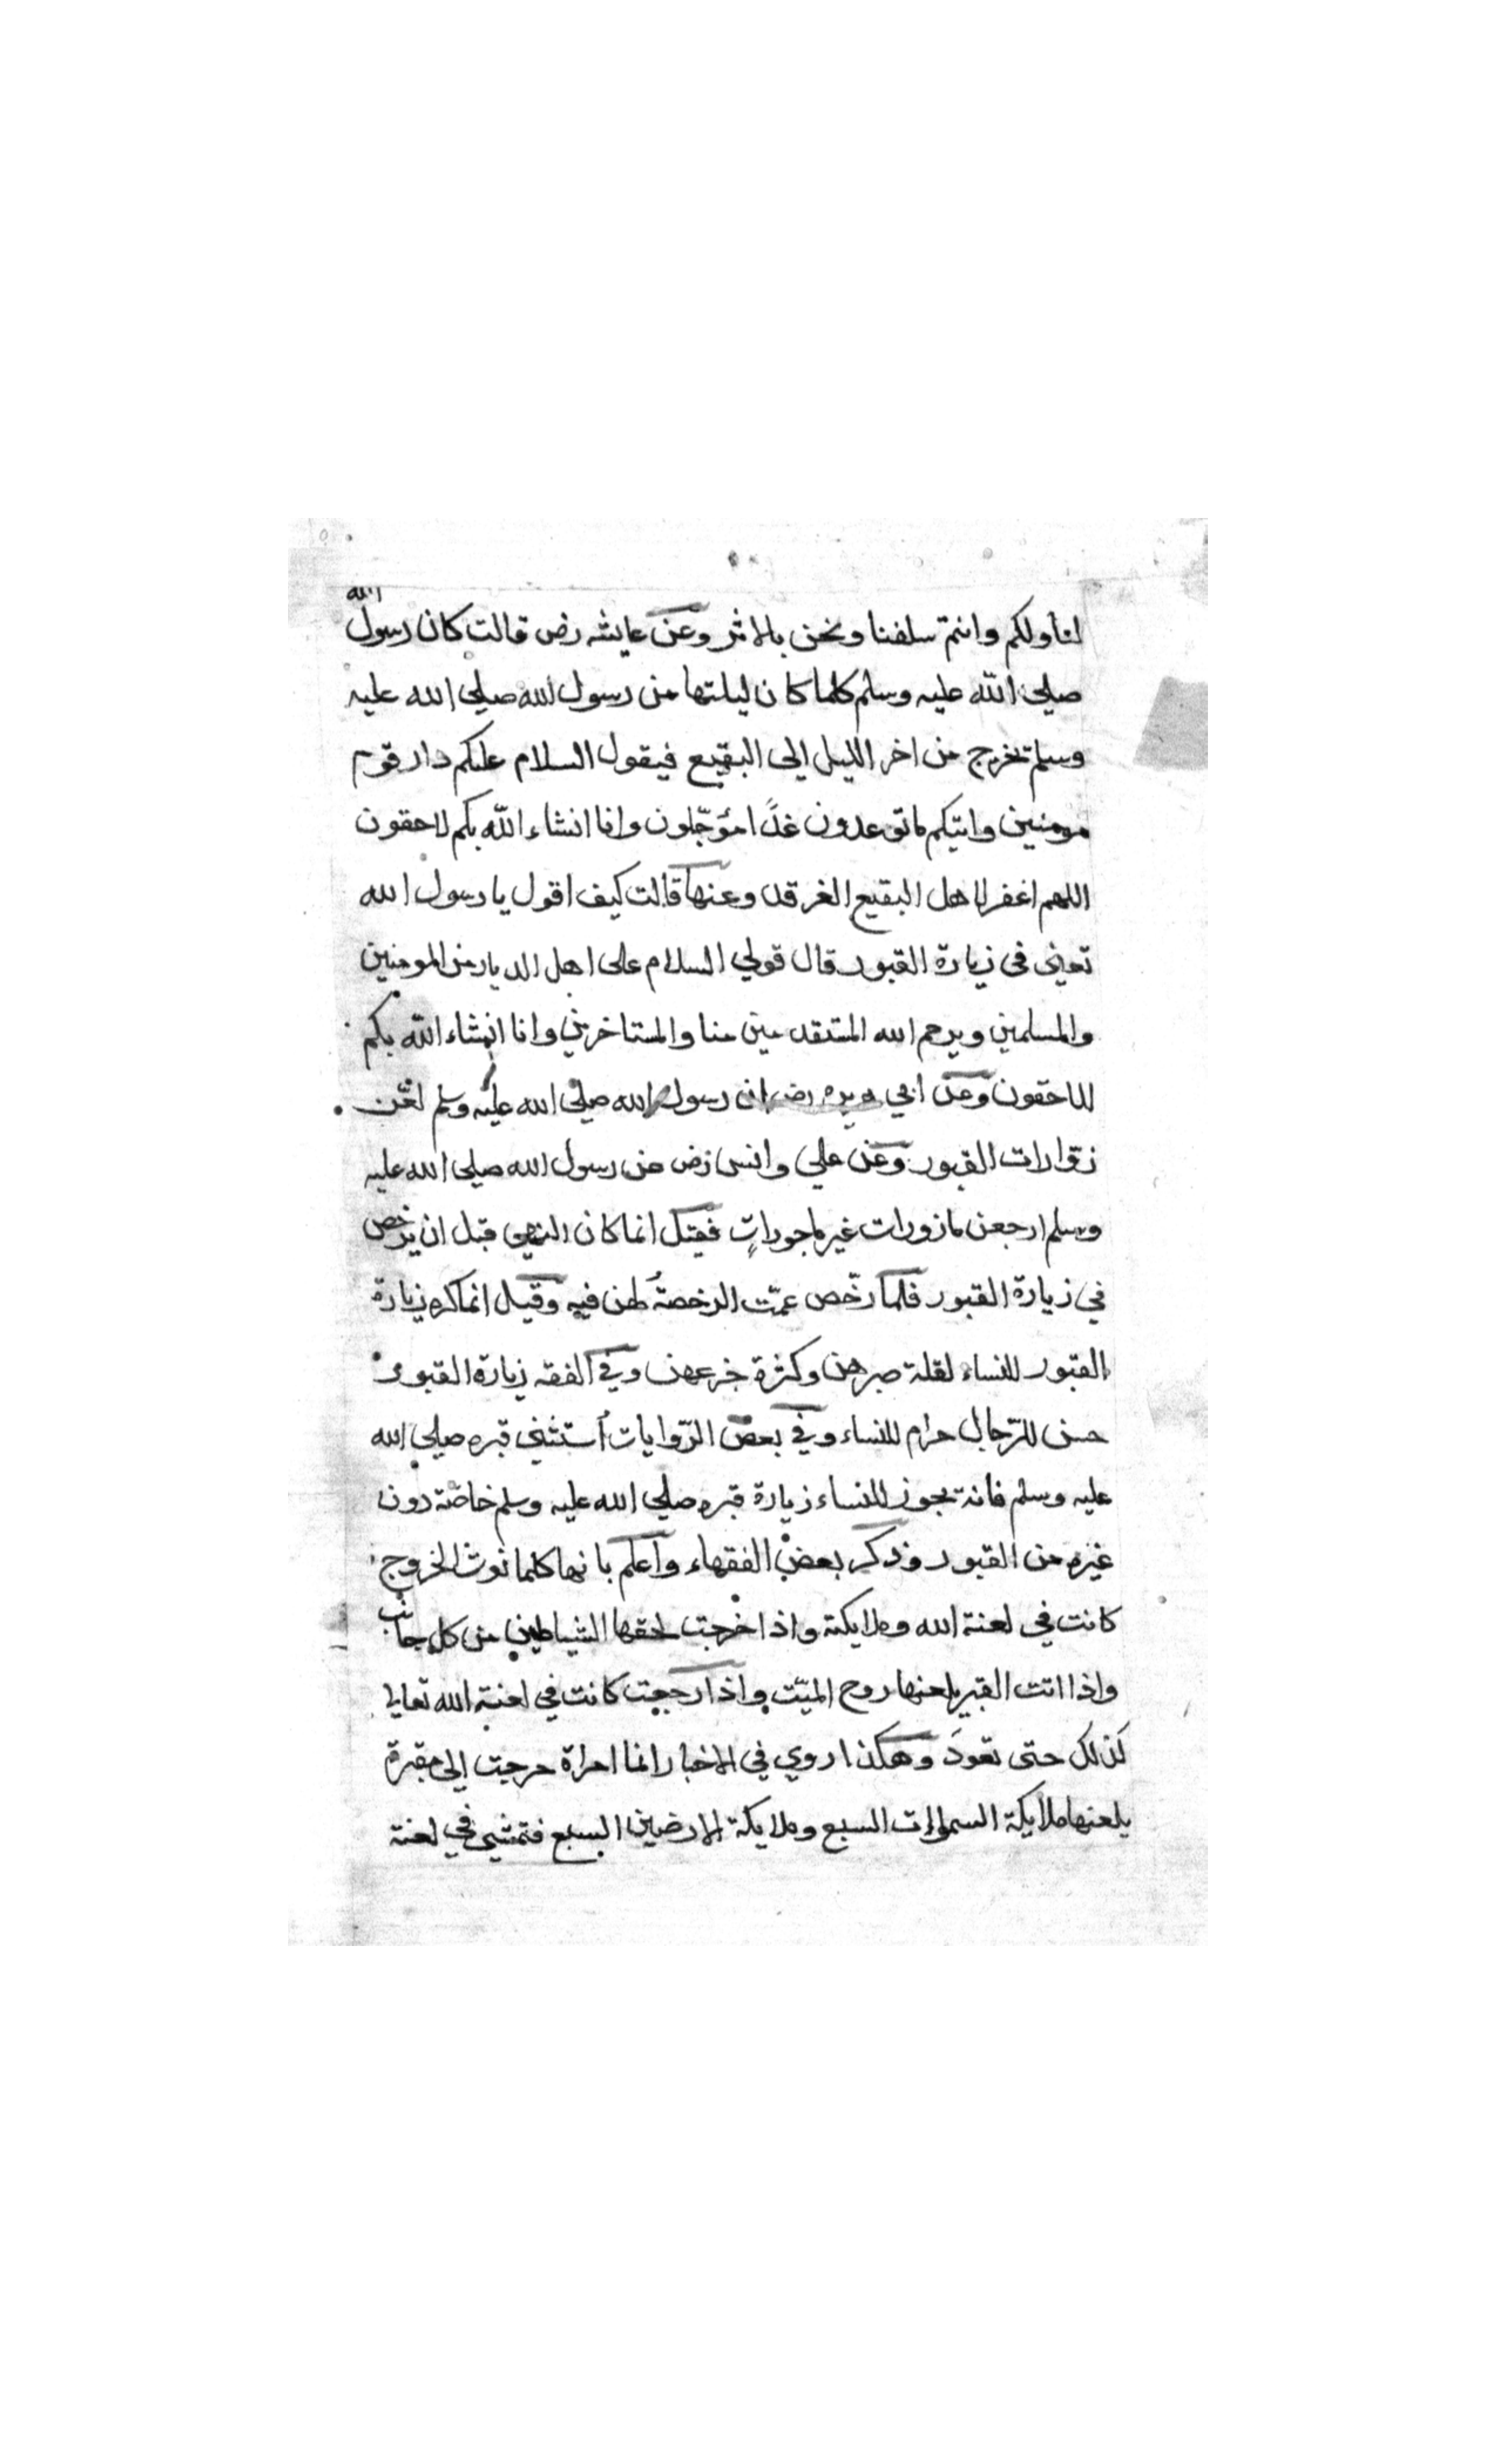 لنا ولكم وانتم سلفنا ونحن بالاثر وعن عايشه رض قالت كان رسول الله
صلى الله عليه وسلم كلما كان ليلتها من رسول الله صلى الله عليه
وسلم تخرج من اخر الليل الى البقيع فيقول السلام عليكم دار قوم
مومنين واتيكم ماتوعدون غدًا مؤجّلون وانا انشاء الله بكم لاحقون
اللهم اغفر لاهل البقيع الغرقد وعنها قالت كيف اقول يا رسول الله
تعنى فى زيارة القبور قال قولي السلام على اهل الديار من المومنين
والمسلمين ويرحم الله المتقدمين منا والمستاخرين وانا انشاء الله بكم
للاحقون وعن ابي هريره رض ان رسول الله صلى الله عليه وسلم لعن
زوّارات القبور وعن علي وانس رض من رسول الله صلى الله عليه
وسلم ارجعن مازورات غير ماجوراتٍ فقيل انما كان النهي قبل ان يرخص
في زيارة القبور فلما رخّص عمّت الرخصةُ لهن فيه وقيل انما كره زيارة
القبور للنساء لقلة صبرهن وكثرة جزعهن وفي الفقه زيارة القبور
حسن للرّجال حرام للنساء وفي بعض الرّوايات أستثني قبره صلي الله
عليه وسلم فانه يجوز للنساء زيارة قبره صلي الله عليه وسلم خاصّة دون
غيره من القبور وذكر بعض الفقهاء واعلم بانها كلما نوت الخروج
كانت في لعنة الله وملايكته واذا خرجت لحقها الشياطين من كل جانب
واذا اتت القبر يلعنها روح الميّت واذا رجعت كانت في لعنة الله تعالي
كذلك حتى تعودَ وهكذا روي في الاخبار انما امراة خرجت الى مقبرة
يلعنها ملايكة السموات السبع وملايكة الارضين السبع فتمشي في لعنة